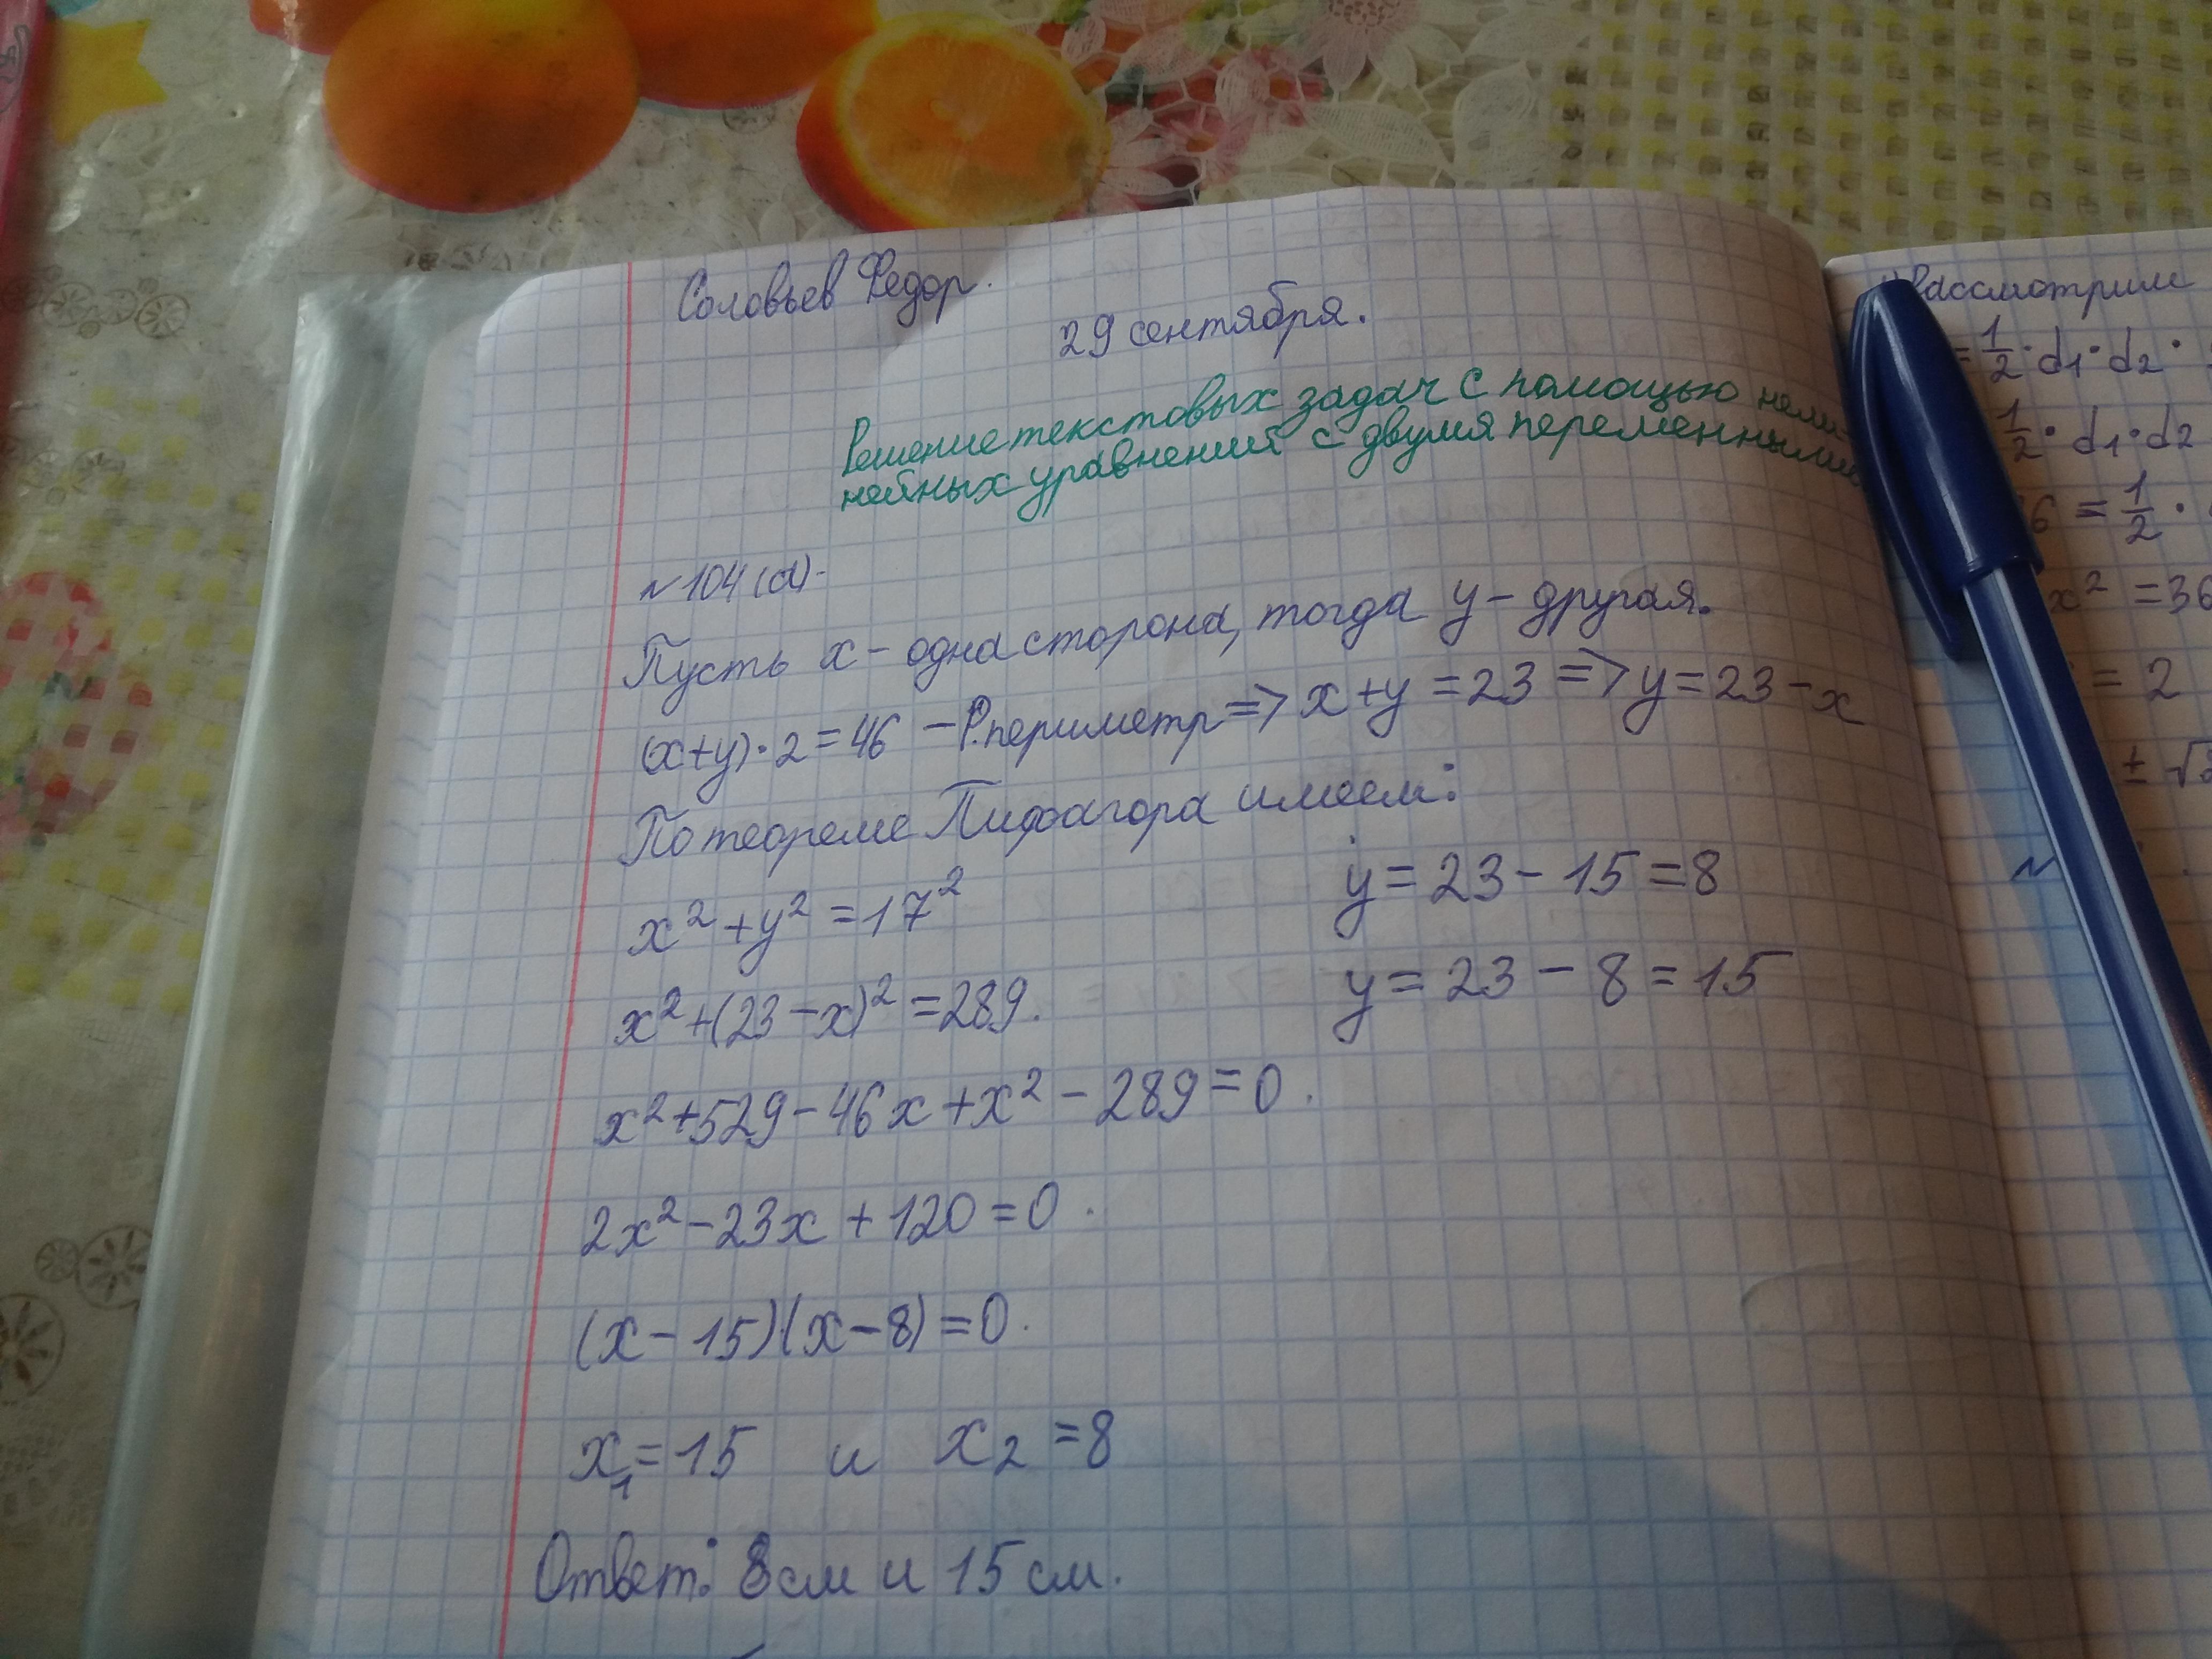 Соловьев Федор.
29 сентября.
Решение текстовых задач с помощью нели-
нейных уравнений с двумя переменными
№104(а).
Пусть x - одна сторона, тогда y - другая.
(x+y)·2=46 - P.периметр => x+y=23 => y=23-x
По теореме Пифагора имеем:
x²+y²=17²
y=23-15=8
x²+(23-x)²=289.
y=23-8=15
x²+529-46x+x²-289=0.
2x²-23x+120=0.
(x-15)(x-8)=0.
x₁=15 и x₂=8
Ответ: 8см и 15 см.
Рассмотрим
=1/2·d1·d2·
1/2·d1·d2
6=1/2·
x²=36
=2
±√